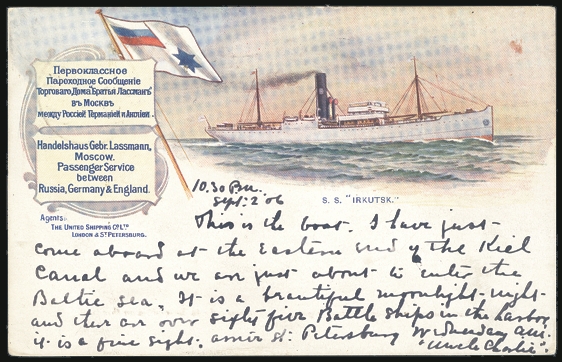 Первоклассное
Пароходное Сообщеніе
Торговаго Дома "Братья Лассманъ"
въ Москвѣ
между Россіей Германіей и Англіей.
Handelshaus Gebr. Lassmann,
Moscow.
Passenger Service
between
Russia, Germany & England.
Agents:-
THE UNITED SHIPPING Co. LTD
LONDON & ST PETERSBURG.
S. S. "IRKUTSK."
10.30 P.M.
Sept. 2 '06
This is the boat. I have just
come aboard at the Eastern end of the Kiel
Canal and we are just about to enter the
Baltic sea. It is a beautiful moonlight night
and there are over fifty five Battle ships in the harbor
it is a fine sight. arrive St. Petersburg Wednesday a.m.
"Uncle Charlie".